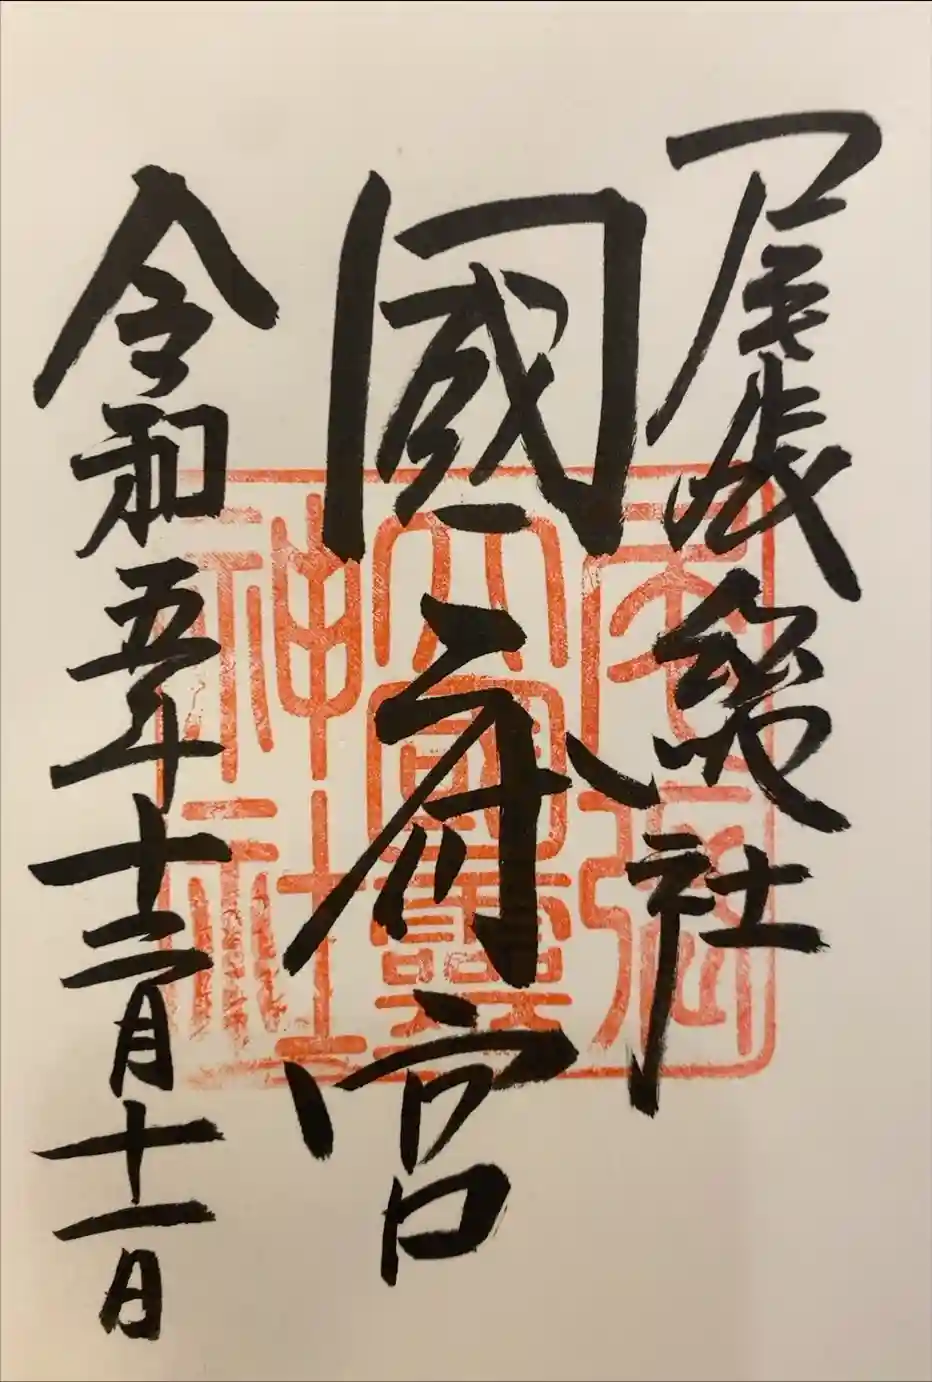 尾張総社
國府宮
令和五年十二月十一日
尾張
大國靈
神社